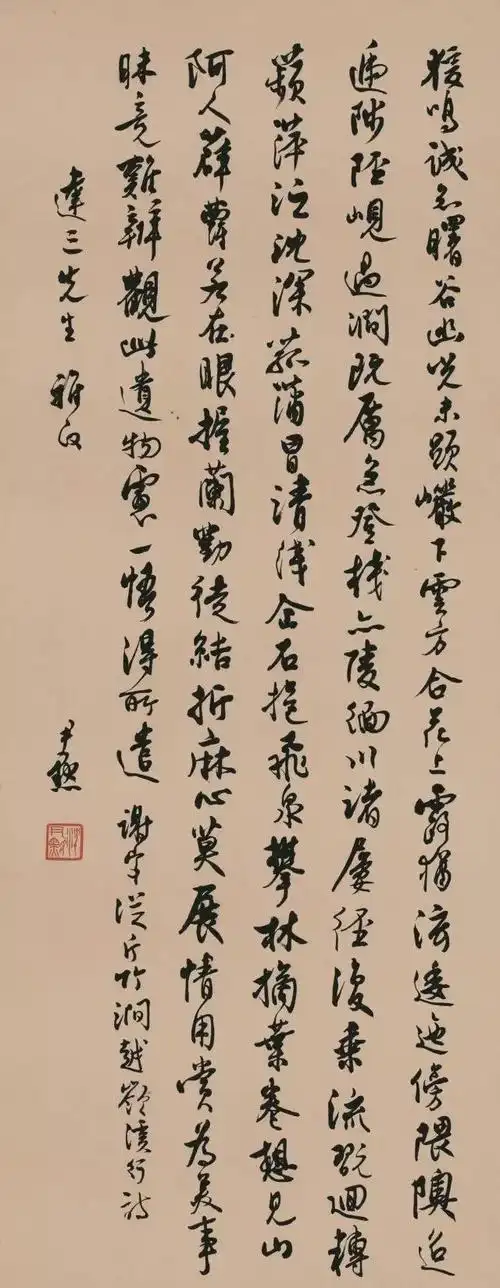 猨鳴誠知曙谷幽光未顯巖下雲方合花上露猶泫逶迤傍隈隩迢
遞陟陘峴過澗既厲急登棧亦陵緬川渚屢徑復乘流翫迴轉
蘋萍泛沈深菰蒲冒清淺企石挹飛泉攀林摘葉卷想見山
阿人薜蘿若在眼握蘭勤徒結折麻心莫展情用賞為美事
昧竟難辨觀此遺物慮一悟得所遣 謝 從斤竹澗越嶺溪行詩
達三先生 雅正 尹默